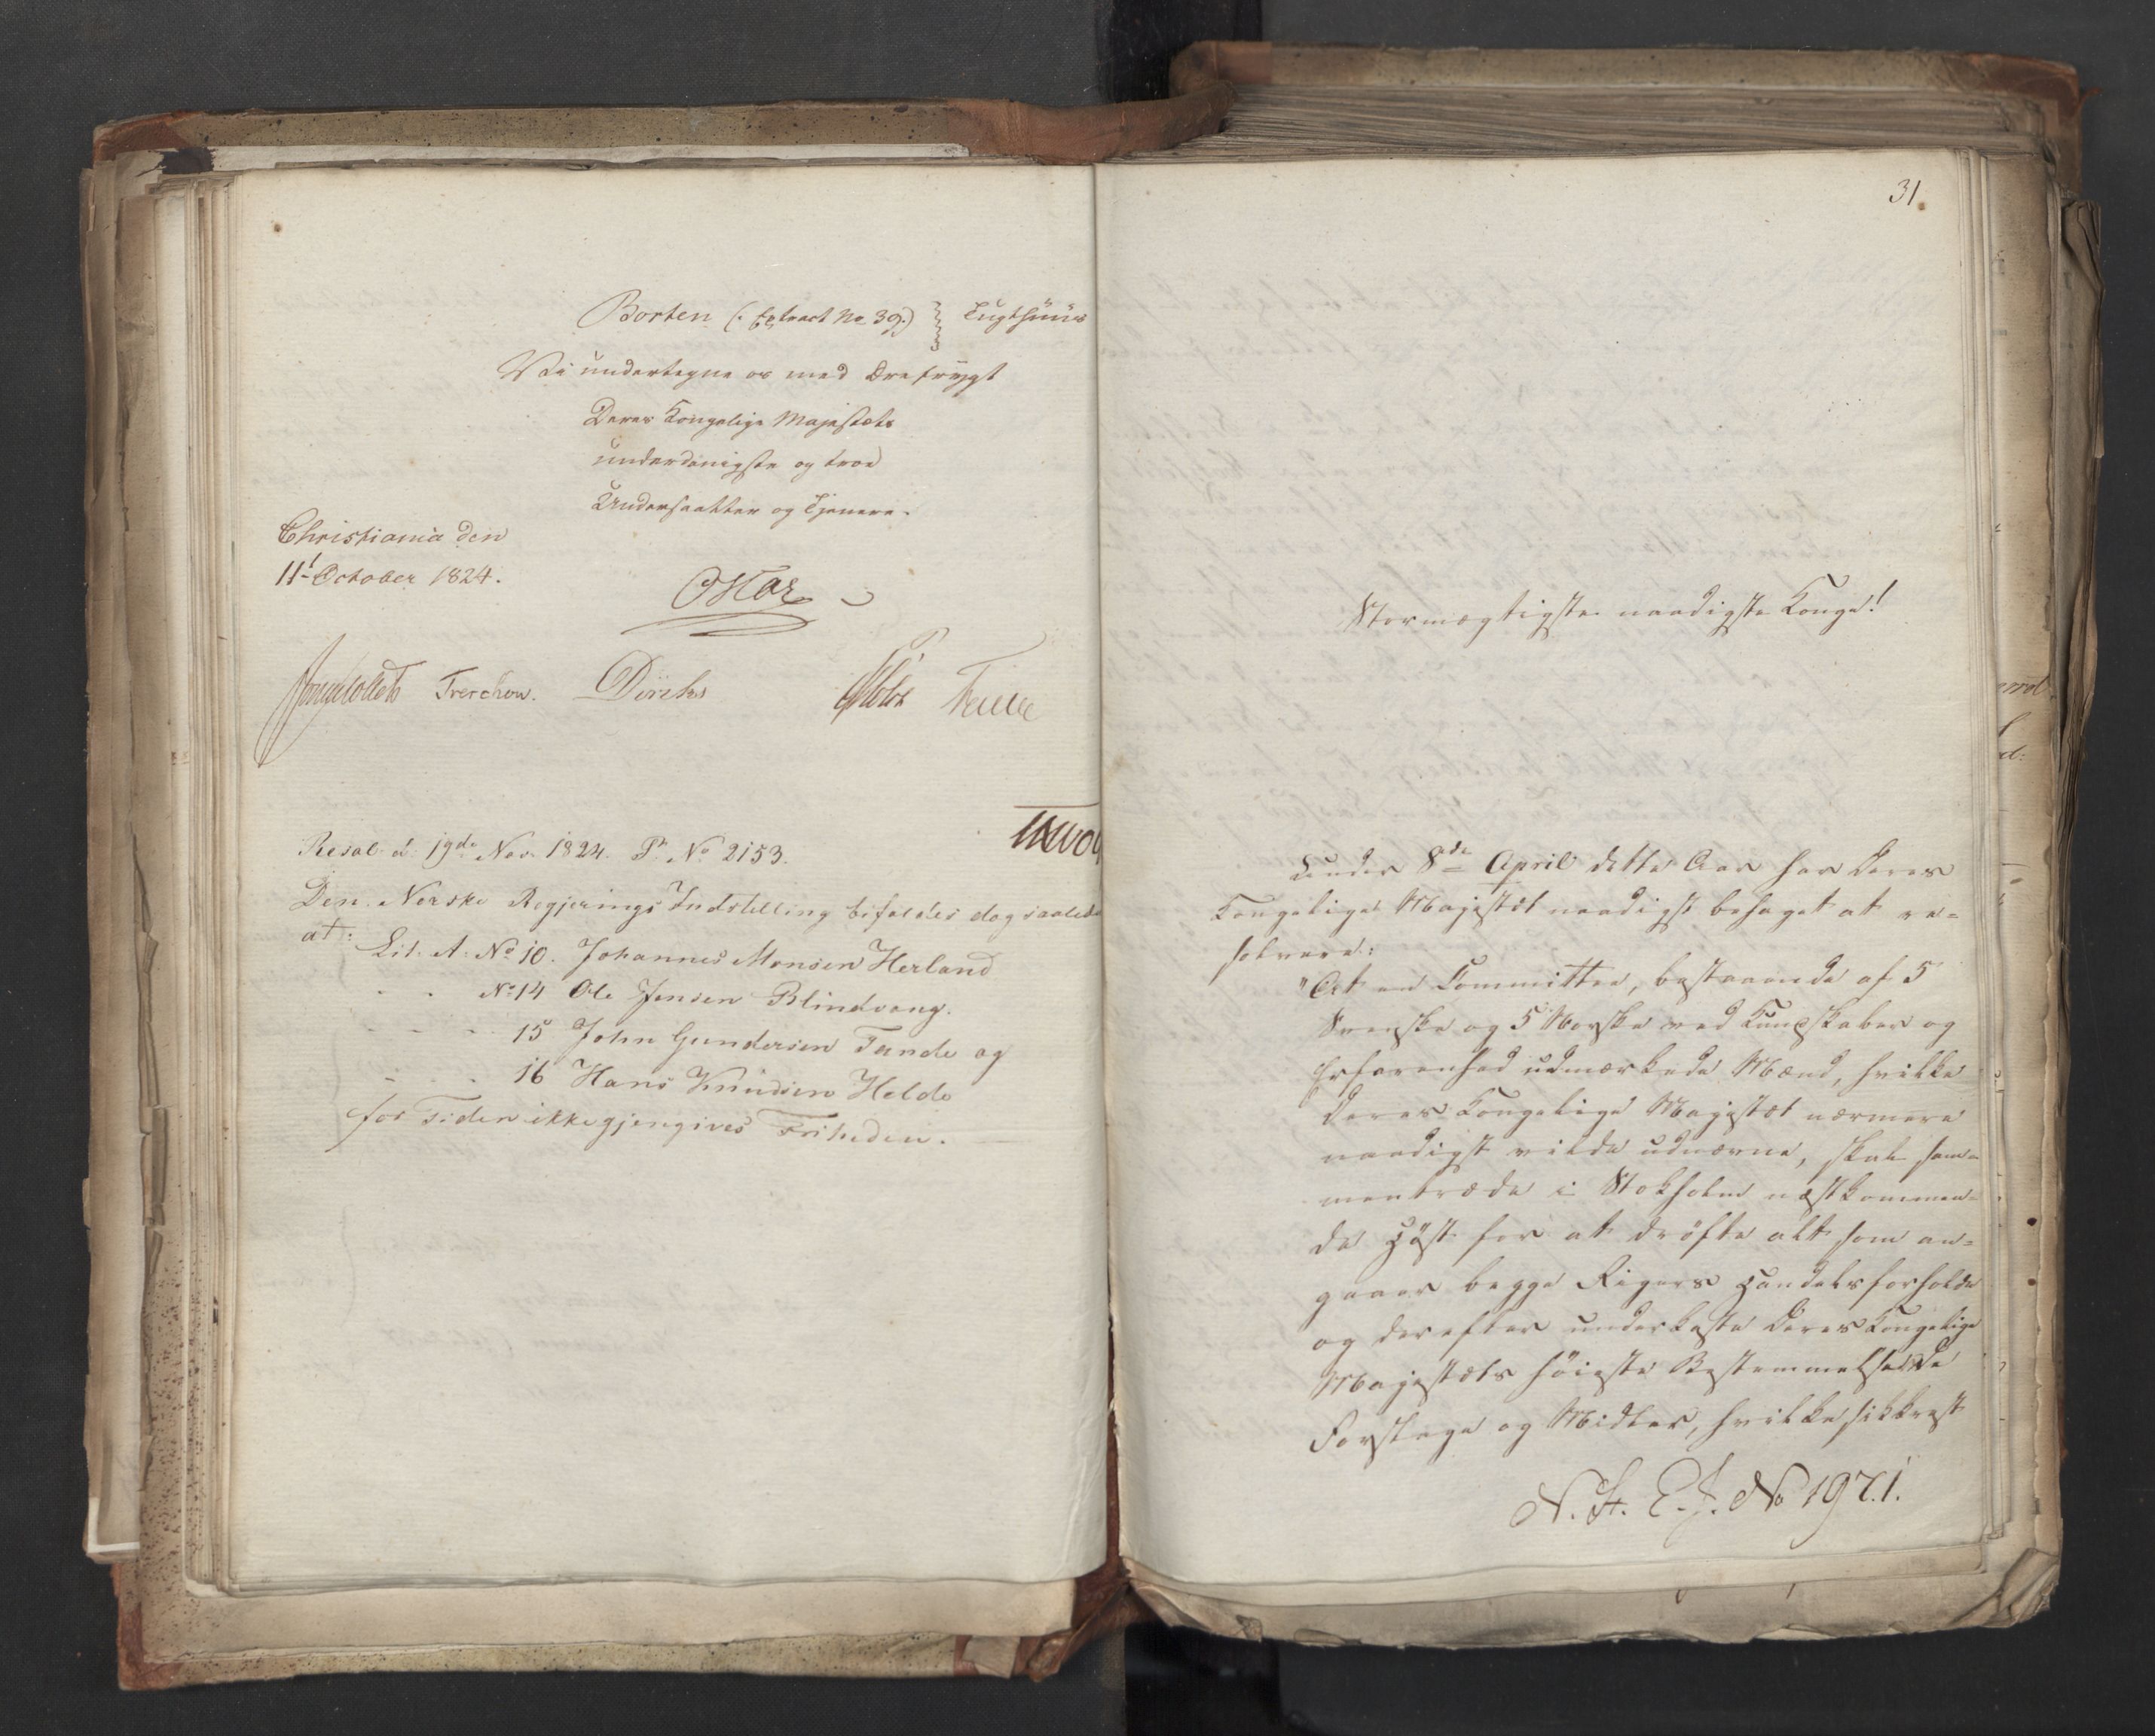 Borten (: Extract No 39.) } Tugthuus
Vi undertegne os med Ærefrygt
Deres Kongelige Majestæts
underdanigste og troe
Undersaatter og Tjenere.
Christiania den
11t October 1824.
Oscar
Treschow. Diriks
Resol. d: 19de Nov. 1824. Pr. No 2153.
Den Norske Regjerings Indstilling bifaldes dog saaledes
at:
Lit. A. No 10. Johannes Monsen Herland
No 14 Ole Jensen Blindvang.
15 John Gundersen Tande og
16 Hans Knudsen Helde
for Tiden ikke gjengives Friheden.
31.
Stormægtigste naadigste Konge!
Under 8de April dette Aar har Deres
Kongelige Majestæt naadigst behaget at re-
solvere:
"At en Committee, bestaaende af 5
Svenske og 5 Norske ved Kundskaber og
Erfarenhed udmærkede Mænd, hvilke
Deres Kongelige Majestæt nærmere
naadigst vilde udnævne, skal sam-
mentræde i Stokholm næstkommen-
de Høst for at drøfte alt som an-
gaaer begge Rigers Handelsforholde
og derefter underkaste Deres Kongelige
Majestæts høieste Bestemmelse de
Forslage og Midler, hvilke sikkrest
N. St. E. J. No 1971.